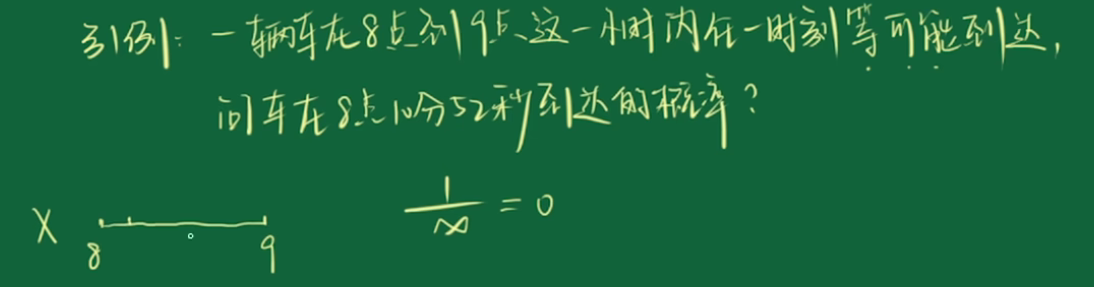 引例：一辆车在8点到9点这一小时内任一时刻等可能到达，
问车在8点10分52秒到达的概率？
X 8 9 1/∞ = 0